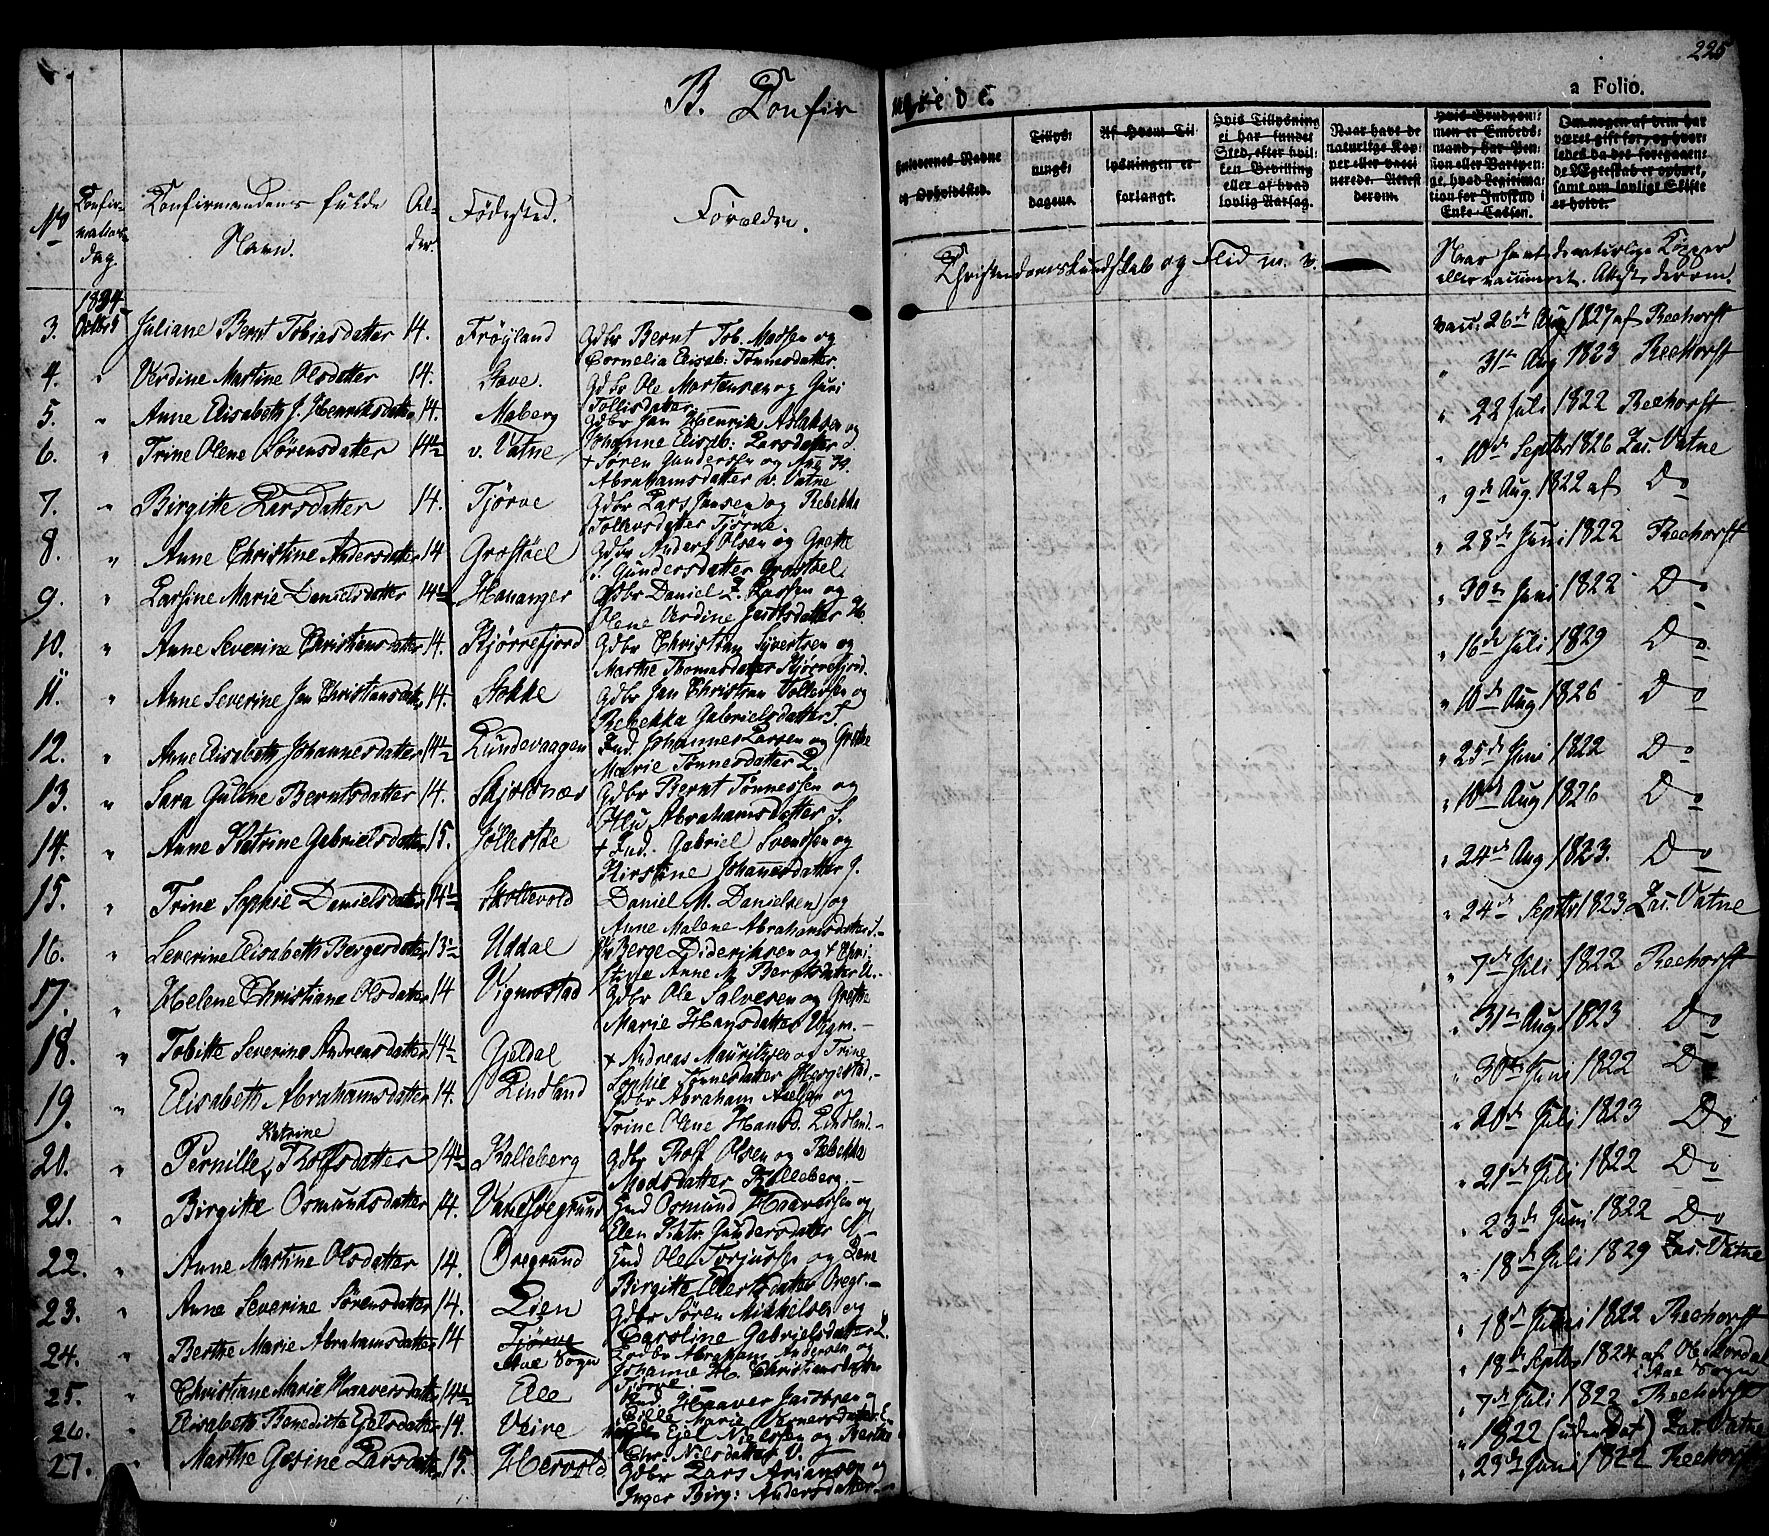 225
a Folio.
B. Confirmerede.
No
Confirmations dag.
Confirmandens fulde Navn.
Alder
Fødested.
Forældre.
Christendomskundskab og Flid m. v.
Naar havt de naturlige Kopper eller vaccineret. Attest derom.
Tillysningsdagene.
Af Hvem Tillysningen er forlangt.
Hvis Tillysning ei har fundet Sted, efter hvilken Bevilling eller af hvad lovlig Aarsag.
Naar havt de naturlige Kopper eller vaccinerede. Attest derom.
Hvis Brudgommen er Embedsmand, har Pension eller Vartpenge, hvad Legitimation for Indskud i Enke-Cassen.
Om nogen af dem har været gift før, og hvorledes da det foregaaende Ægteskab er ophævet, samt om lovlige Skifte er holdt.
1834
Octbr 5
3. Juliane Bernt Tobiasdatter 14. Frøyland Gdbr Bernt Tob. Madsen og
Cornelia Elisab: Tønnesdatter. vacc. 26de Aug 1827 af Reehorst
4. " Verdine Martine Olsdatter 14. Stave. Gdbr Ole Martensen og Guri
Tollisdatter " 31te Aug 1823 Reehorst
5. " Anne Elisabeth J. Henriksdatter 14. Maberg Gdbr Jan Henrik Aslaksen og
Johanne Elisab: Larsdatter " 22 Juli 1822 Reehorst
6. " Trine Olene Sørensdatter 14½ v. Vatne + Søren Gundersen og Ane
Abrahamsdatter v. Vatne " 10de Septbr 1826 Zac. Vatne
7. " Birgitte Larsdatter 14. Tjørve Gdbr Lars Jansen og Rebekka
Tollevsdatter Tjørve. " 9de Aug 1822 af Do
8. " Anne Christine Andersdatter 14 Grostøel Gdbr Anders Olsen og Grethe
S. Gundersdatter Grostøel. " 28de Juni 1822 Reehorst
9. " Larsine Marie Danielsdatter 14½ Hananger Gdbr Daniel Z. Larssen og
Olene Verdine Justsdatter H. " 30te Juni 1822 Do
10. " Anne Severine Christiansdatter 14. Kjørrefjord Gdbr Christian Syvertsen og
Marthe Thomasdatter Kjørrefjord. " 16de Juli 1829 Do
11. " Anne Severine Jan Christiansdatt. 14. Stokke Gdbr Jan Christian Tollevsen og
Rebekka Gabrielsdatter S. " 10de Aug 1826 Do
12. " Anne Elisabeth Johannesdatter 14½ Lundevaagen Ind. Johannes Larsen og Grethe
Marie Tønnesdatter L. " 25de Juni 1822 Do
13. " Sara Guline Berntsdatter 14. Skjolsnæs Gdbr Bernt Tønnessen og
Olu Abrahamsdatter S. " 10de Aug 1826 Do
14. " Anne Katrine Gabrielsdatter 15. Jøllestøe + Ind. Gabriel Svendsen og
Kirstine Johannesdatter J. " 24de Aug 1823. Do
15. " Trine Sophie Danielsdatter 14½ Skollevold Daniel M. Danielsen og
Anne Malene Abrahamsdatter S. " 24de Septbr 1823 Zac. Vatne
16. " Severine Elisabeth Bergesdatter 13½ Uddal Berge Dideriksen og + Chri-
stine Anne M. Berntsdatter U. " 7de Juli 1822 Reehorst
17. " Helene Christiane Olsdatter 14 Vigmostad Gdbr Ole Salvesen og Grethe
Marie Hansdatter Vigm. " 31te Aug 1823 Do
18. " Tobitte Severine Andreasdatter 14½ Gjeldal + Andreas Mauritzen og Trine
Sophie Tønnesdatter Hergestad. " 30te Juni 1822 Do
19. " Elisabeth Abrahamsdatter 14. Lindland Gdbr Abraham Nielsen og
Trine Olene Hansd. Lindland. " 20de Juli 1823 Do
20. " Pernille Katrine Rolfsdatter 14½ Kalleberg Gdbr Rolf Olsen og Rebekka
Madsdatter Kalleberg. " 21de Juli 1822 Do
21. " Birgitte Osmundsdatter 14. Vansøegrund Ind Osmund Haaversen og
Elen Katr Gundersdatter " 23de Juni 1822 Do
22. " Anne Martine Olsdatter 14. Oregrund Ind Ole Torjussen og Lene
Birgitte Ellertsdatter Oregr. " 18de Juli 1829 Zac. Vatne
23. " Anne Severine Sørensdatter 14. Lien Gdbr Søren Mikkelsen og
Caroline Gabrielsdatter L. " 18de Juli 1822 Reehorst
24. " Berthe Marie Abrahamsdatter 14 Tjørve Aae Sogn Gdbr Abraham Andersen og
Johanne H. Christiansdatter
Tjørve " 18de Septbr 1824 af Ob Skordal
i Aae Sogn
25. " Christiane Marie Haaversdatter 14½ Ele Ind Haaver Jacobsen og
Cille Marie Vernersdatter E. " 7de Juli 1822 Reehorst
26. " Elisabeth Benedicte Ejelsdatter 14. Veire Ejel Nielssen og Berthe
Chr. Nilsdatter V. " 1822 (uden Dat) Zac. Vatne
27. " Marthe Gesine Larsdatter 15. Hervold Gdbr Lars Ariansen og
Inger Birg: Andersdatter " 23de Juni 1822 Reehorst